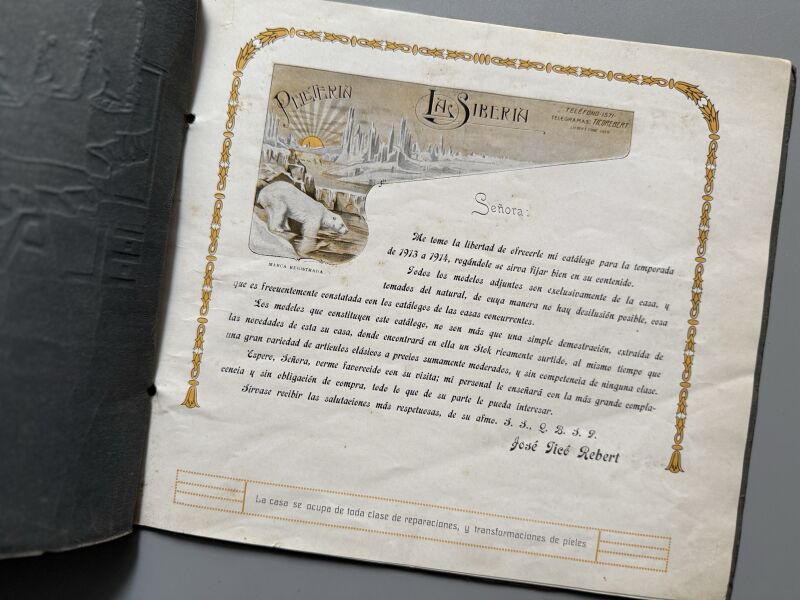 Peletería
La Siberia
TELÉFONO-1571-
TELEGRAMAS: TICÓREBERT
MARCA REGISTRADA
Señora:
Me tomo la libertad de ofrecerle mi catálogo para la temporada
de 1913 a 1914, rogándole se sirva fijar bien en su contenido.
Todos los modelos adjuntos son exclusivamente de la casa, y
tomados del natural, de cuya manera no hay desilusión posible, cosa
que es frecuentemente constatada con los catálogos de las casas concurrentes.
Los modelos que constituyen este catálogo, no son más que una simple demostración, extraída de
las novedades de esta su casa, donde encontrará en ella un Stok ricamente surtido, al mismo tiempo que
una gran variedad de artículos clásicos a precios sumamente moderados, y sin competencia de ninguna clase.
Espero, Señora, verme favorecido con su visita; mi personal le enseñará con la más grande compla-
cencia y sin obligación de compra, todo lo que de su parte le pueda interesar.
Sírvase recibir las salutaciones más respetuosas, de su afmo. S. S., Q. B. S. P.
José Ticó Rebert
La casa se ocupa de toda clase de reparaciones, y transformaciones de pieles